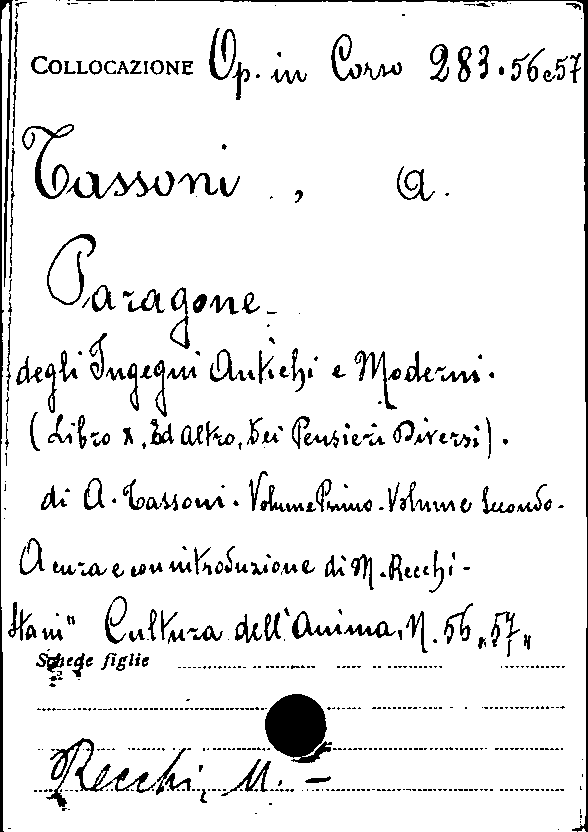 COLLOCAZIONE Op. in Corso 283.56e57
Tassoni, A.
Paragone
degli Ingegni Antichi e Moderni.
(Libro X, Ed altro, Dei Pensieri Diversi).
di A. Tassoni. Volume Primo. Volume Secondo.
A cura e con introduzione di M. Recchi-
"Cultura dell'Anima, N. 56 „57„
Schede figlie
Recchi, M. –